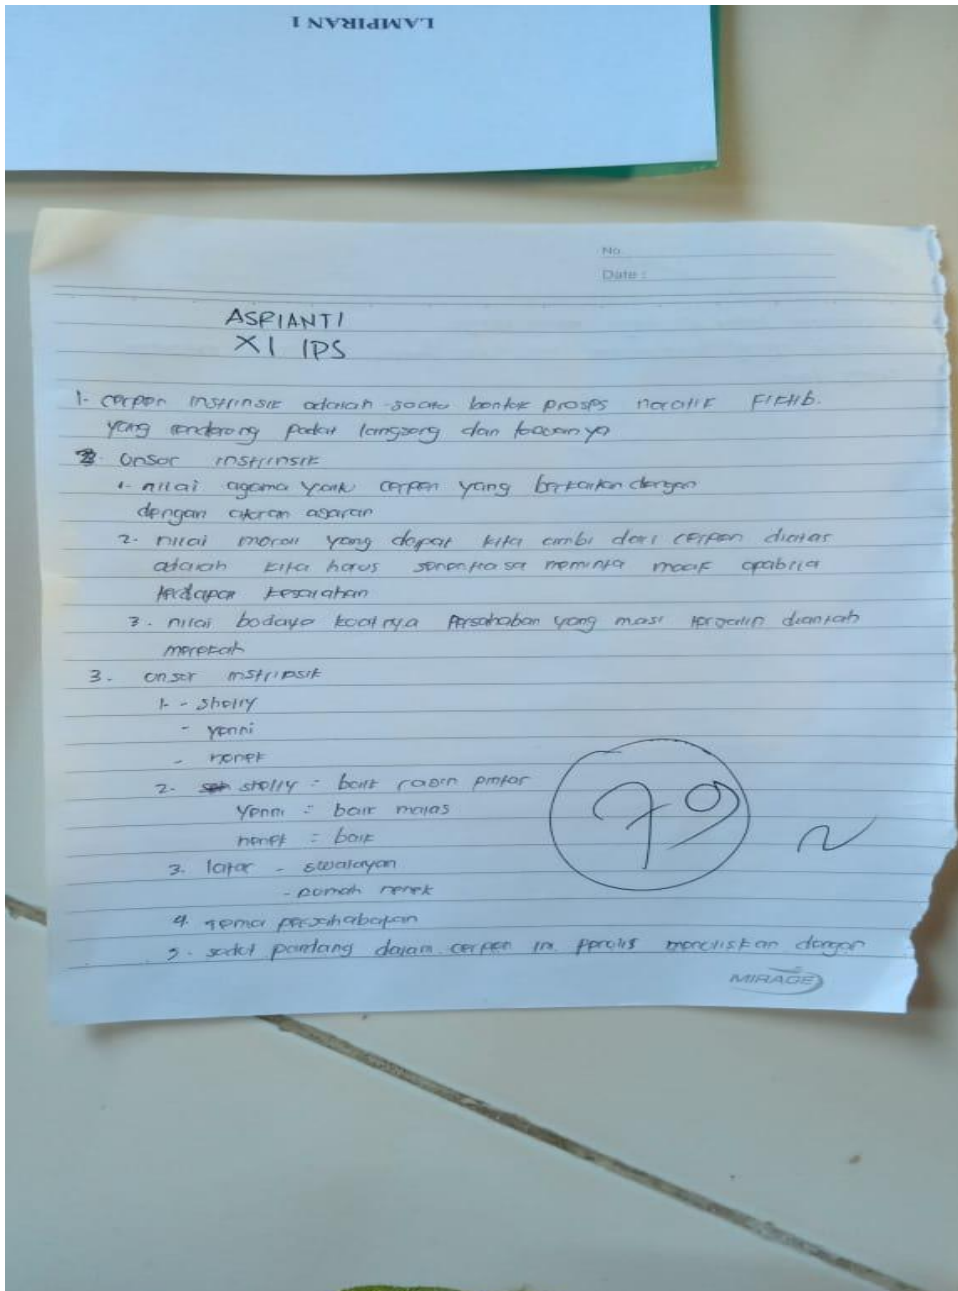 LAMPIRAN 1
No.
Date :
ASRIANTI
XI IPS
1- cerpen instrinsik adalah suatu bentuk proses naratif
yang cenderung padat langsung dan
2. Unsur instrinsik
1. nilai agama cerpen yang berkaitan dengan
dengan ajaran
2. nilai moral yang dapat kita ambi dari cerpen diatas
adalah kita harus meminta maaf apabila
terdapan kesalahan
3. nilai budaya kuatnya Persahaban yang masi terjalin diantah
merekah
3. unsur instripsik
1. - shelly
- yenni
- nenek
2. shelly : baik rasin pintar
Yenni : baik malas
nenek : baik
3. latar - swalayan
- rumah nenek
4. tema persahabatan
5. sudut pandang dalam cerpen in penulis menuliskan dengan
79
MIRAGE